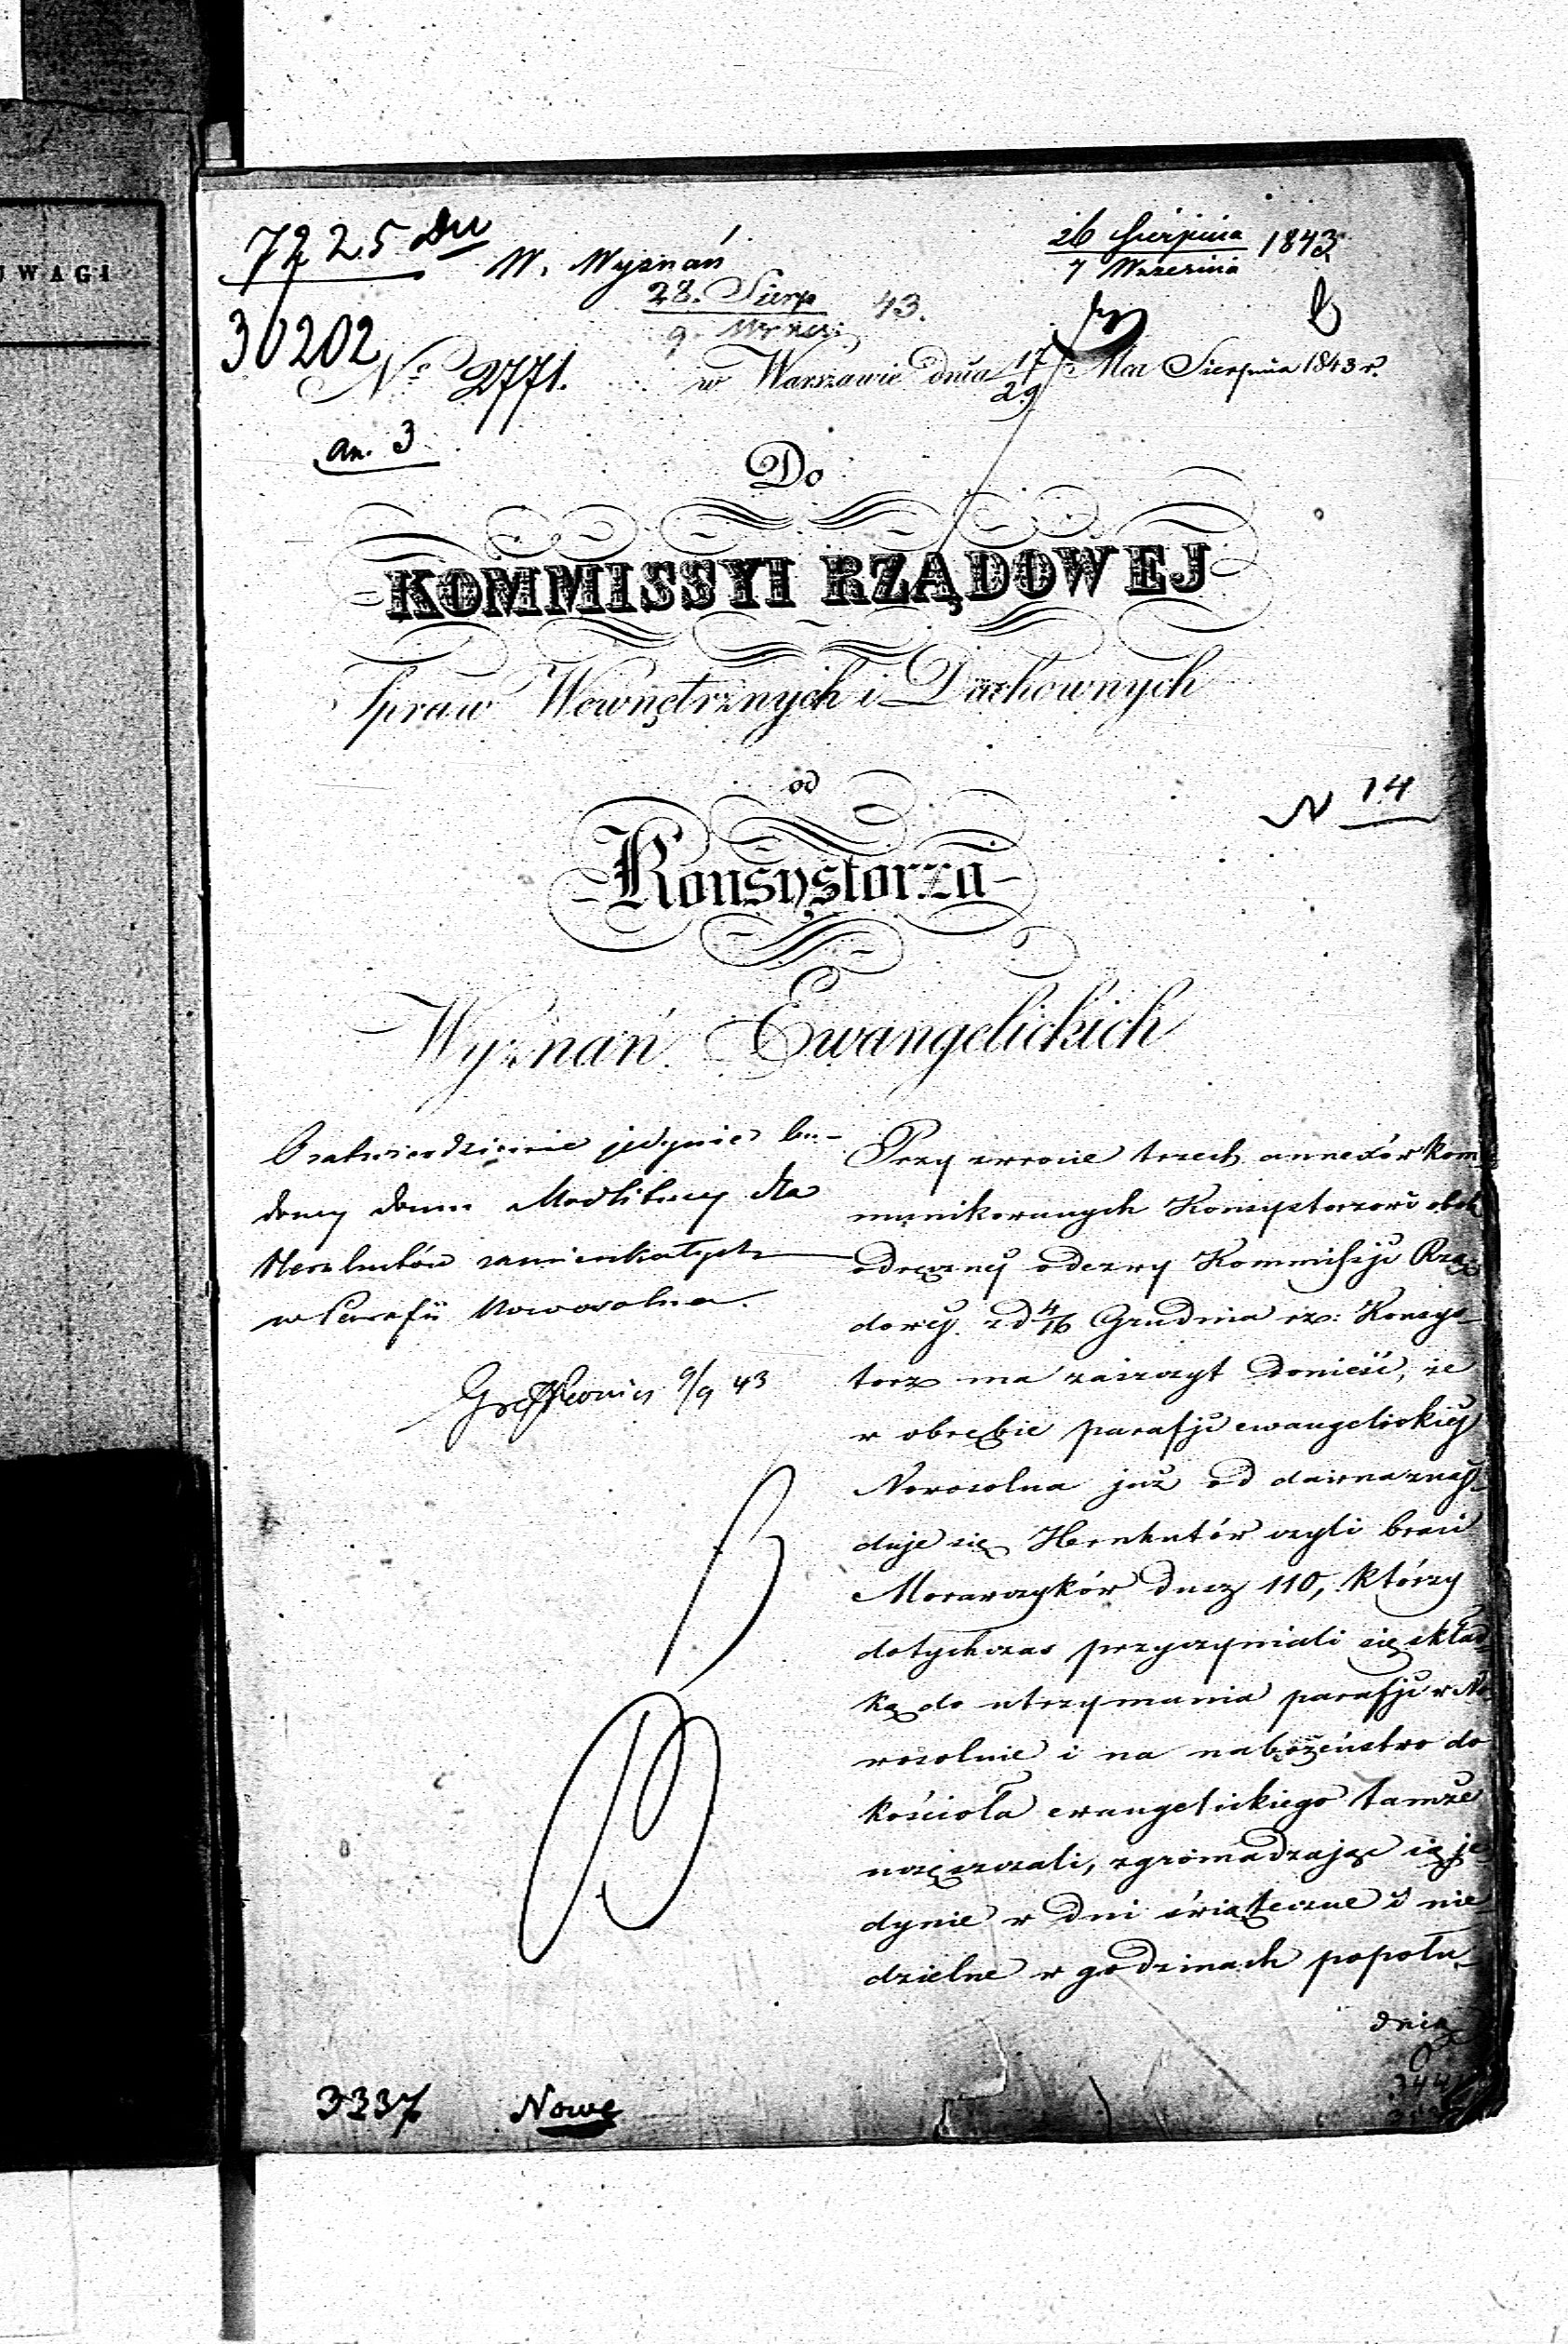 UWAGI
7225 Du
W. Wyznań
26 Sierpnia
7 Września 1843
28. Sierp
9. Wrześ: 43.
30202
No 2771.
w Warszawie dnia 17/29 Mca Sierpnia 1843 r.
an. 3
Do
KOMMISSYI RZĄDOWEJ
Spraw Wewnętrznych i Duchownych
od
N 14
Konsystorza
Wyznań Ewangelickich
jedynie bu-
dowy domu Modlitwy dla
Hernhutów zamieszkałych
w Parafii Nowosolna.
9/9 43
Przy zwrocie trzech annexów kom
munikowanych Konsystorzowi obok
odręcznej odezwy Kommissji Rzą-
dowej z d 4/16 Grudnia rz: Konsys-
torz ma zaszczyt donieść, że
w obrębie parafji ewangelickiej
Nowosolna już od dawna znaj-
duje się Hernhutów czyli braci
Morawczyków dusz 110, którzy
dotychczas przyczyniali się skład-
ką do utrzymania parafji w No
wosolnie i na nabożeństwo do
kościoła ewangelickiego tamże
uczęszczali, zgromadzając się je-
dynie w dni świąteczne i nie
dzielne w godzinach popołu-
dnio
3237
Nowe